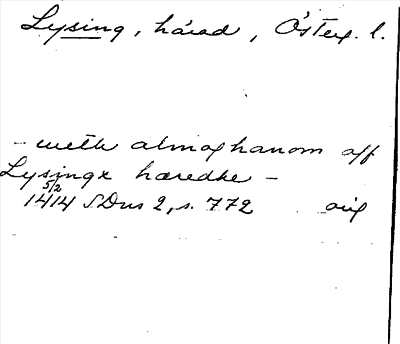 Lysing, härad, Österg. l.
- weth almoghanom aff
Lysinge hæredhe -
5/2
1414 SDns 2, s. 772 orig